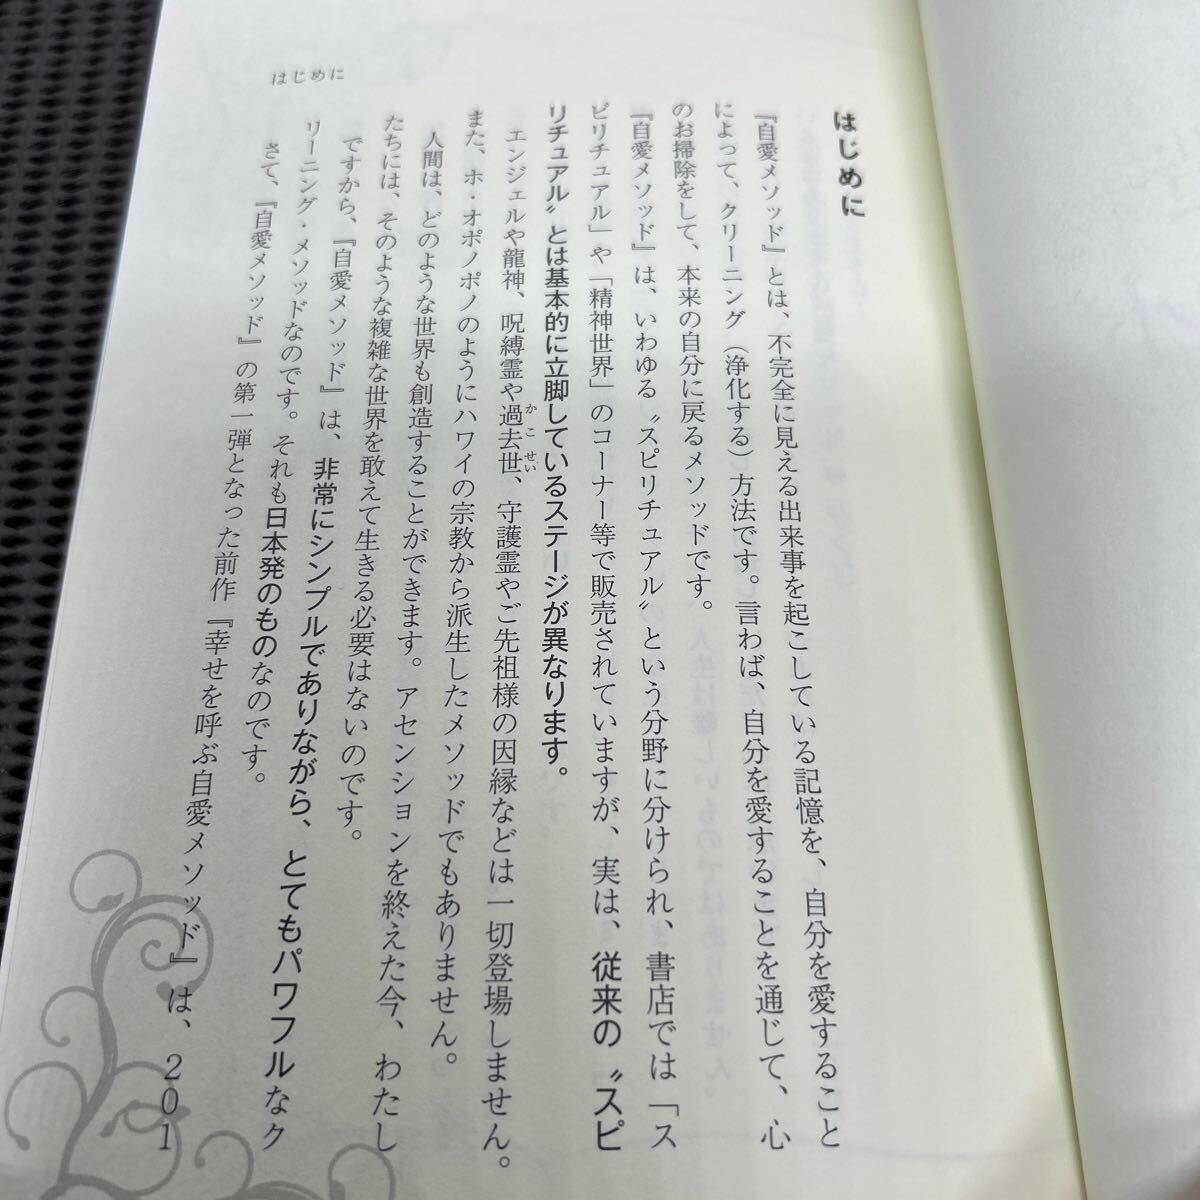 はじめに
はじめに
『自愛メソッド』とは、不完全に見える出来事を起こしている記憶を、自分を愛すること
によって、クリーニング（浄化する）方法です。言わば、自分を愛することを通じて、心
のお掃除をして、本来の自分に戻るメソッドです。
『自愛メソッド』は、いわゆる〝スピリチュアル〟という分野に分けられ、書店では「ス
ピリチュアル」や「精神世界」のコーナー等で販売されていますが、実は、従来の〝スピ
リチュアル〟とは基本的に立脚しているステージが異なります。
エンジェルや龍神、呪縛霊や過去世、守護霊やご先祖様の因縁などは一切登場しません。
かこせい
また、ホ・オポノポノのようにハワイの宗教から派生したメソッドでもありません。
人間は、どのような世界も創造することができます。アセンションを終えた今、わたし
たちには、そのような複雑な世界を敢えて生きる必要はないのです。
ですから、『自愛メソッド』は、非常にシンプルでありながら、とてもパワフルなク
リーニング・メソッドなのです。それも日本発のものなのです。
さて、『自愛メソッド』の第一弾となった前作『幸せを呼ぶ自愛メソッド』は、201